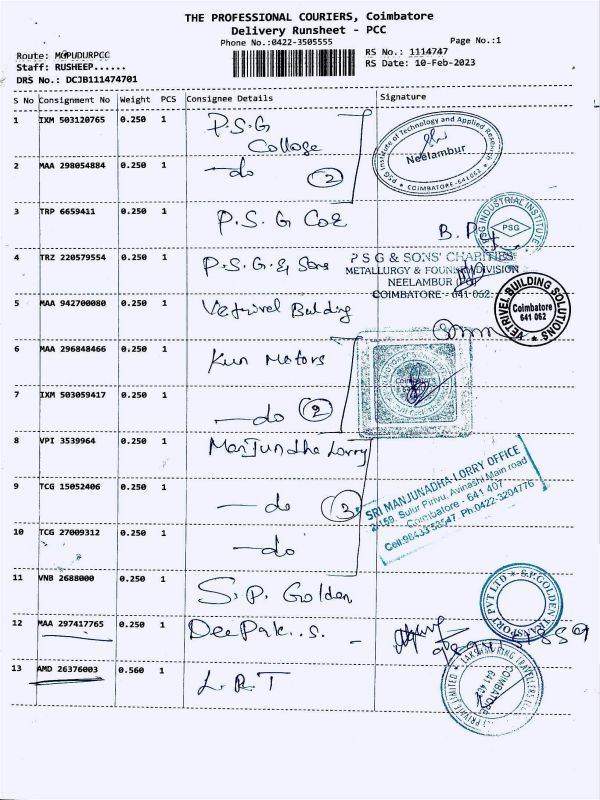 THE PROFESSIONAL COURIERS, Coimbatore
Delivery Runsheet - PCC
Phone No.:0422-3505555
Page No.:1
Route: MOPUDURPCC
RS No.: 1114747
Staff: RUSHEEP......
RS Date: 10-Feb-2023
DRS No.: DCJB111474701
S No Consignment No Weight PCS Consignee Details Signature
1 IXM 503120765 0.250 1 P.S.G College
PSG Institute of Technology and Applied Research
Neelambur
* COIMBATORE-641062 *
2 MAA 298054884 0.250 1 —do (2)
3 TRP 6659411 0.250 1 P.S.G COE
PSG INDUSTRIAL INSTITUTE
PSG
4 TRZ 220579554 0.250 1 P.S.G & Sons
P S G & SONS' CHARITIES
METALLURGY & FOUNDRY DIVISION
NEELAMBUR
COIMBATORE - 641 062.
5 MAA 942700080 0.250 1 Vetrivel Building
VETRIVEL BUILDING SOLUTIONS
Coimbatore
641 062
6 MAA 296848466 0.250 1 Kun Motors
Coimbatore
7 IXM 503059417 0.250 1 —do (2)
8 VPI 3539964 0.250 1 Manjundha Lorry
SRI MANJUNADHA LORRY OFFICE
2/159, Sulur Pirivu, Avinashi Main road
Coimbatore - 641 407
Cell:98433 53547 Ph:0422-3204776
9 TCG 15052406 0.250 1 —do (3)
10 TCG 27009312 0.250 1 —do
11 VNB 2688000 0.250 1 S.P. Golden
S.P.GOLDEN TRANSPORT PVT LTD
12 MAA 297417765 0.250 1 Deepak..s. -
13 AMD 26376003 0.560 1 L.R.T
PRIVATE LIMITED
COIMBATORE